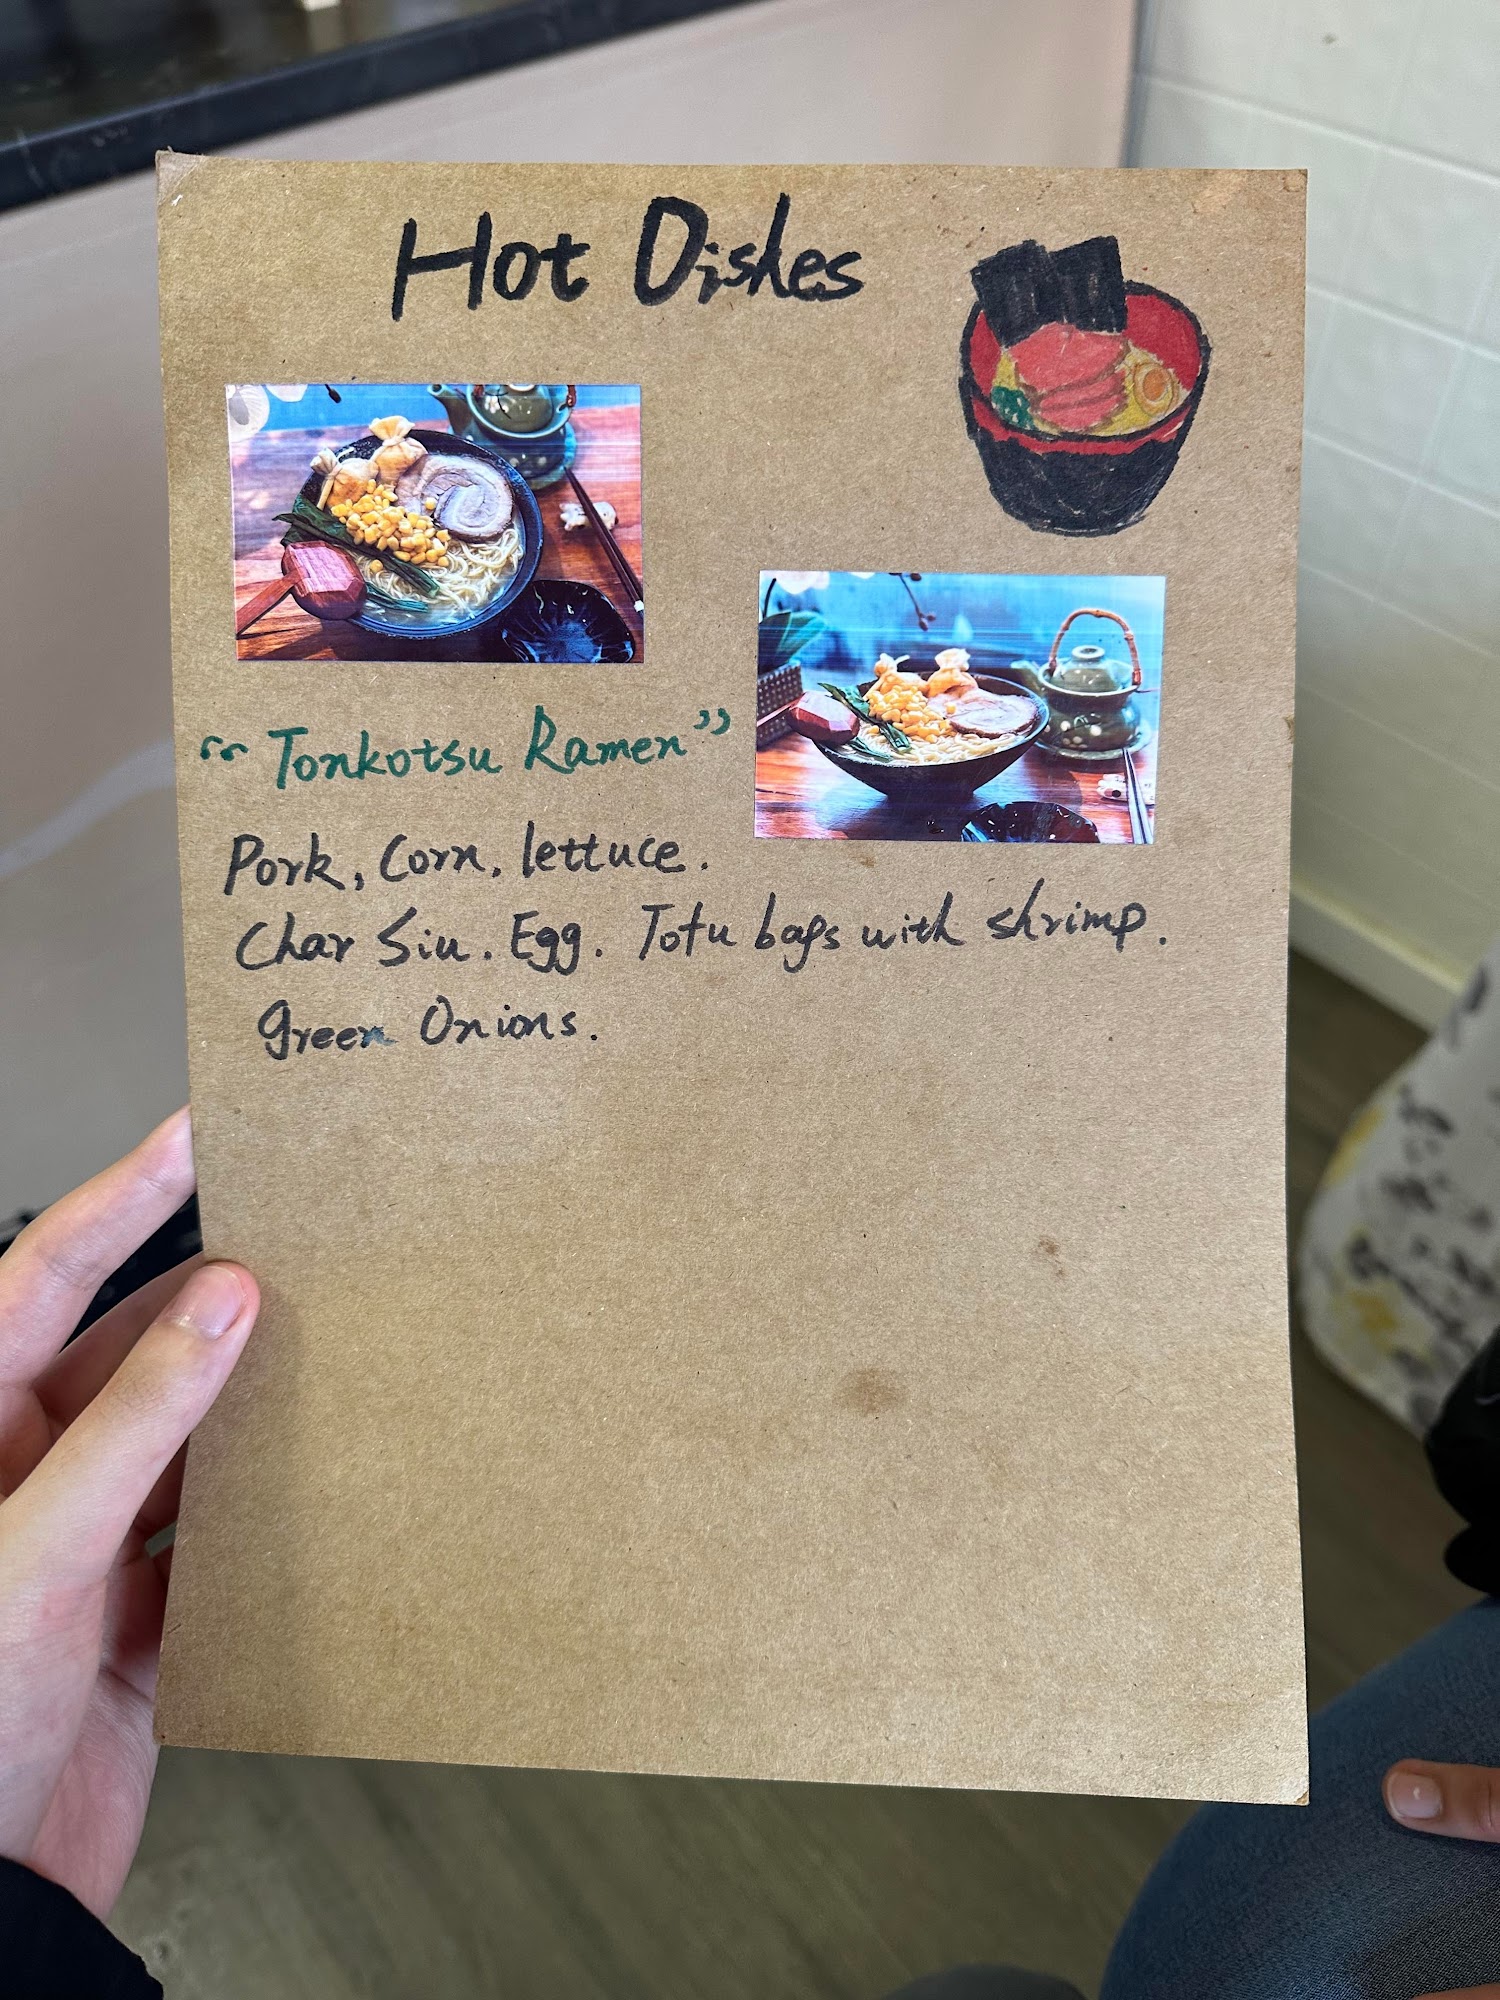 Hot Dishes
“Tonkotsu Ramen”
Pork, Corn, lettuce.
Char Siu. Egg. Tofu bags with shrimp.
green Onions.